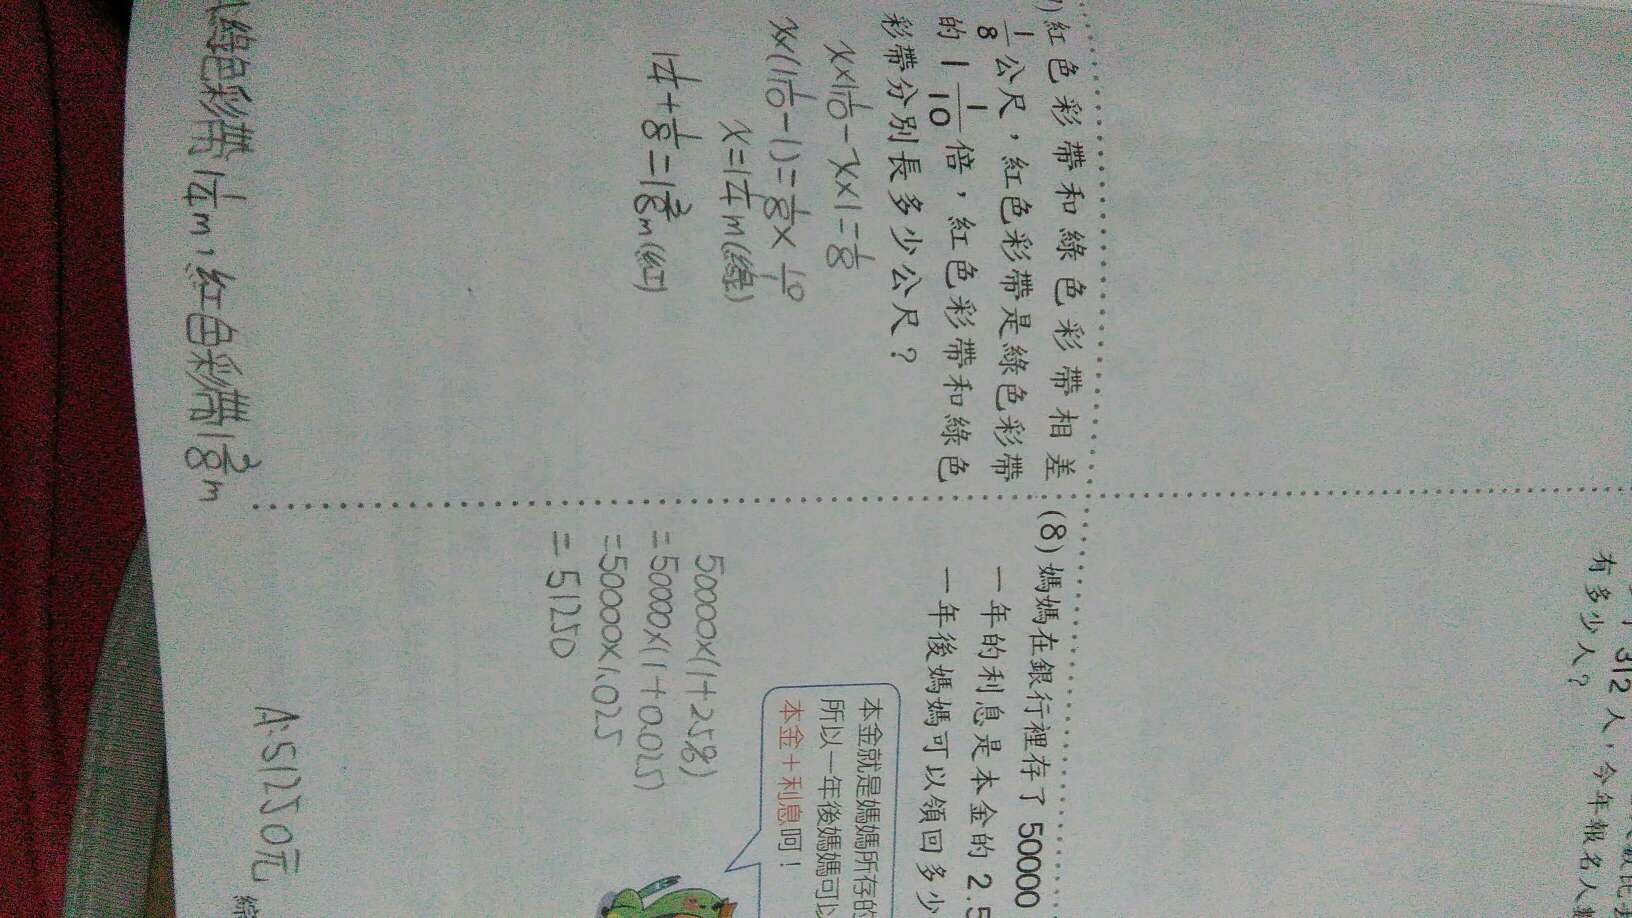 有多少人？
312人，今年報名人
紅色彩帶和綠色彩帶相差
1/8公尺，紅色彩帶是綠色彩帶
的1 1/10倍，紅色彩帶和綠色
彩帶分別長多少公尺？
x×1 1/10-x×1=1/8
x×(1 1/10-1)=1/8×10/1
x=1 1/4m(綠)
1 1/4+1/8=1 3/8m(紅)
綠色彩帶1 1/4m，紅色彩帶1 3/8m
(8)媽媽在銀行裡存了50000
一年的利息是本金的2.5
一年後媽媽可以領回多少
本金就是媽媽所存的
所以一年後媽媽可以
本金＋利息呵！
50000×(1+2.5%)
=50000×(1+0.025)
=50000×1.025
=51250
A:51250元
綜